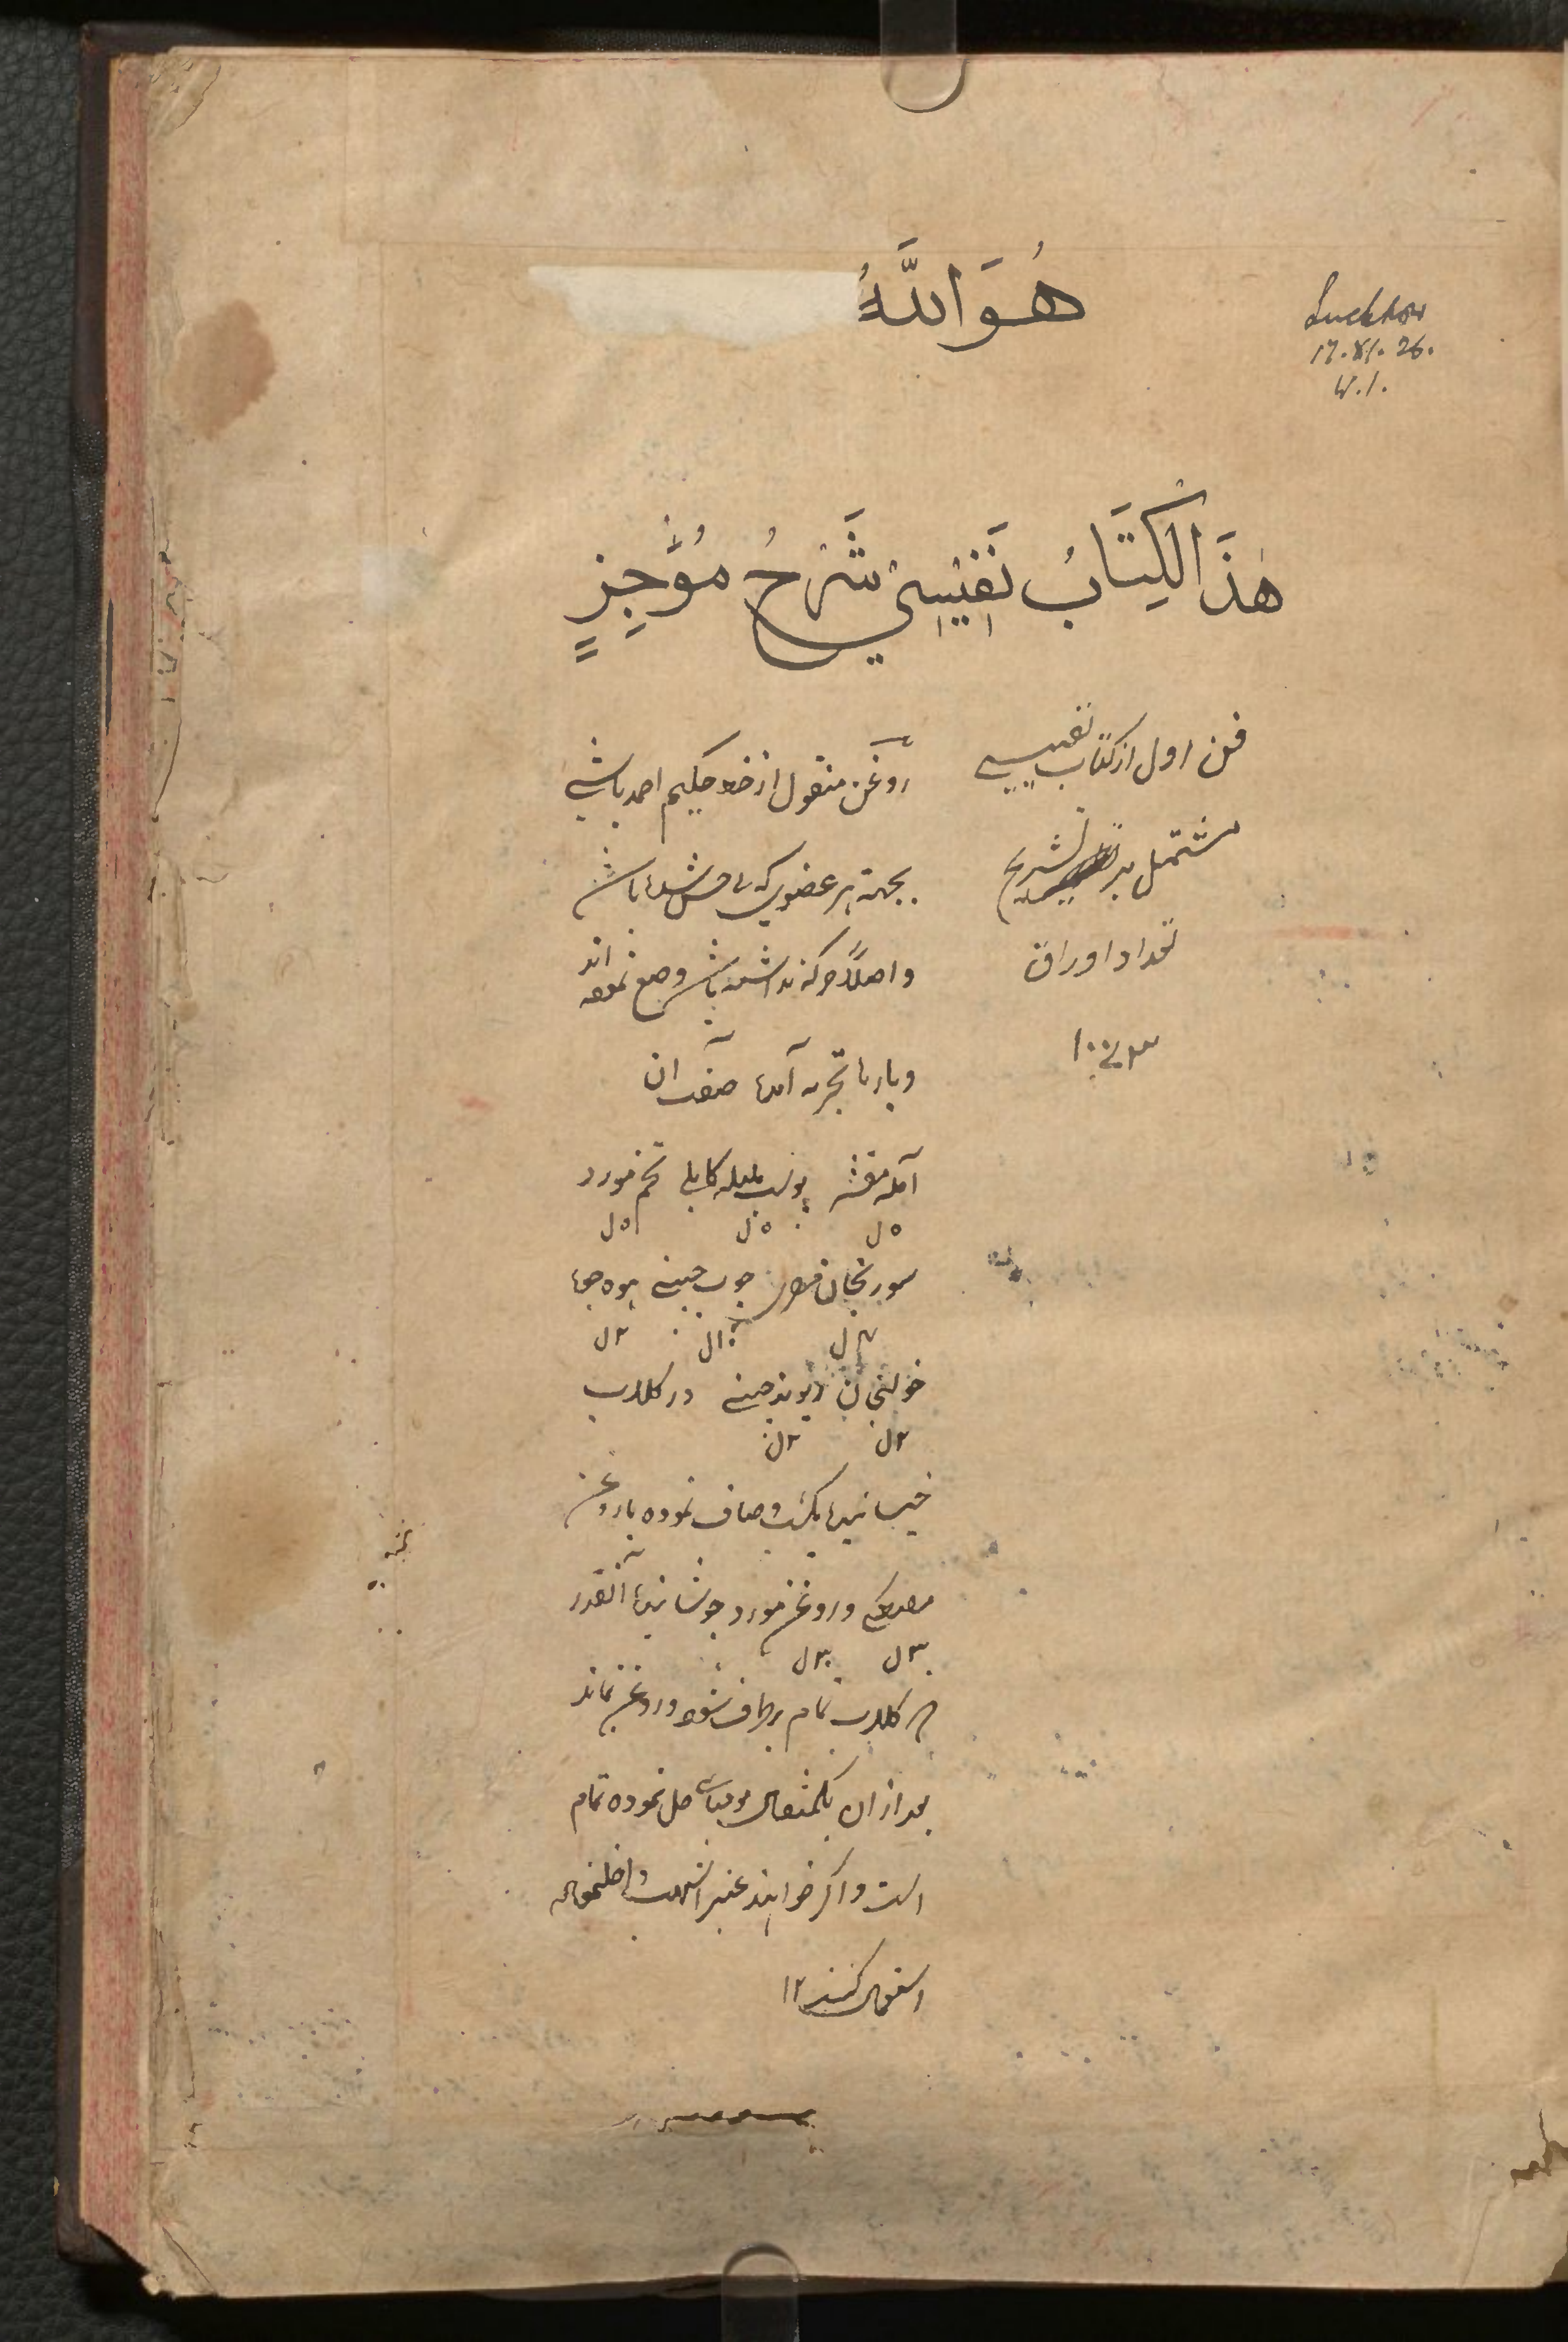 هُوَ اللَّهُ
Lucknow
17.XI.26.
W.I.
هٰذَا الْكِتَابُ نَفِيْسِيْ شَرْحُ مُؤْجِزٍ
فن اول از کتاب نفیسی
مشتمل بر تشریح
تعداد اوراق
روغن منقول از خط حکیم احمد باشی
بجهة هر عضوی که
واصلاً حرکة نداشته باشد وضع نموده اند
وبارها تجربه آمده صفت آن
آمله مقشر پوست هلیله کابلی تخم مورد
۵ل ۵ل ۵ل
سورنجان مصری چوب چینی
۱۰ل ۲ل
خولنجان ریوند چینی در کلاب
۲ل ۲ل
خیسانیده یکشب و صاف نموده با روغن
مصطکی و روغن مورد جوشانیده آنقدر
۳۰ل ۳۰ل
که کلاب تمام برطرف شود و روغن بماند
بعد از ان یکمثقال مومیای حل نموده تمام
است و اگر خواهند عنبر اشهب داخل نموده
استعمال کنند ۱۲